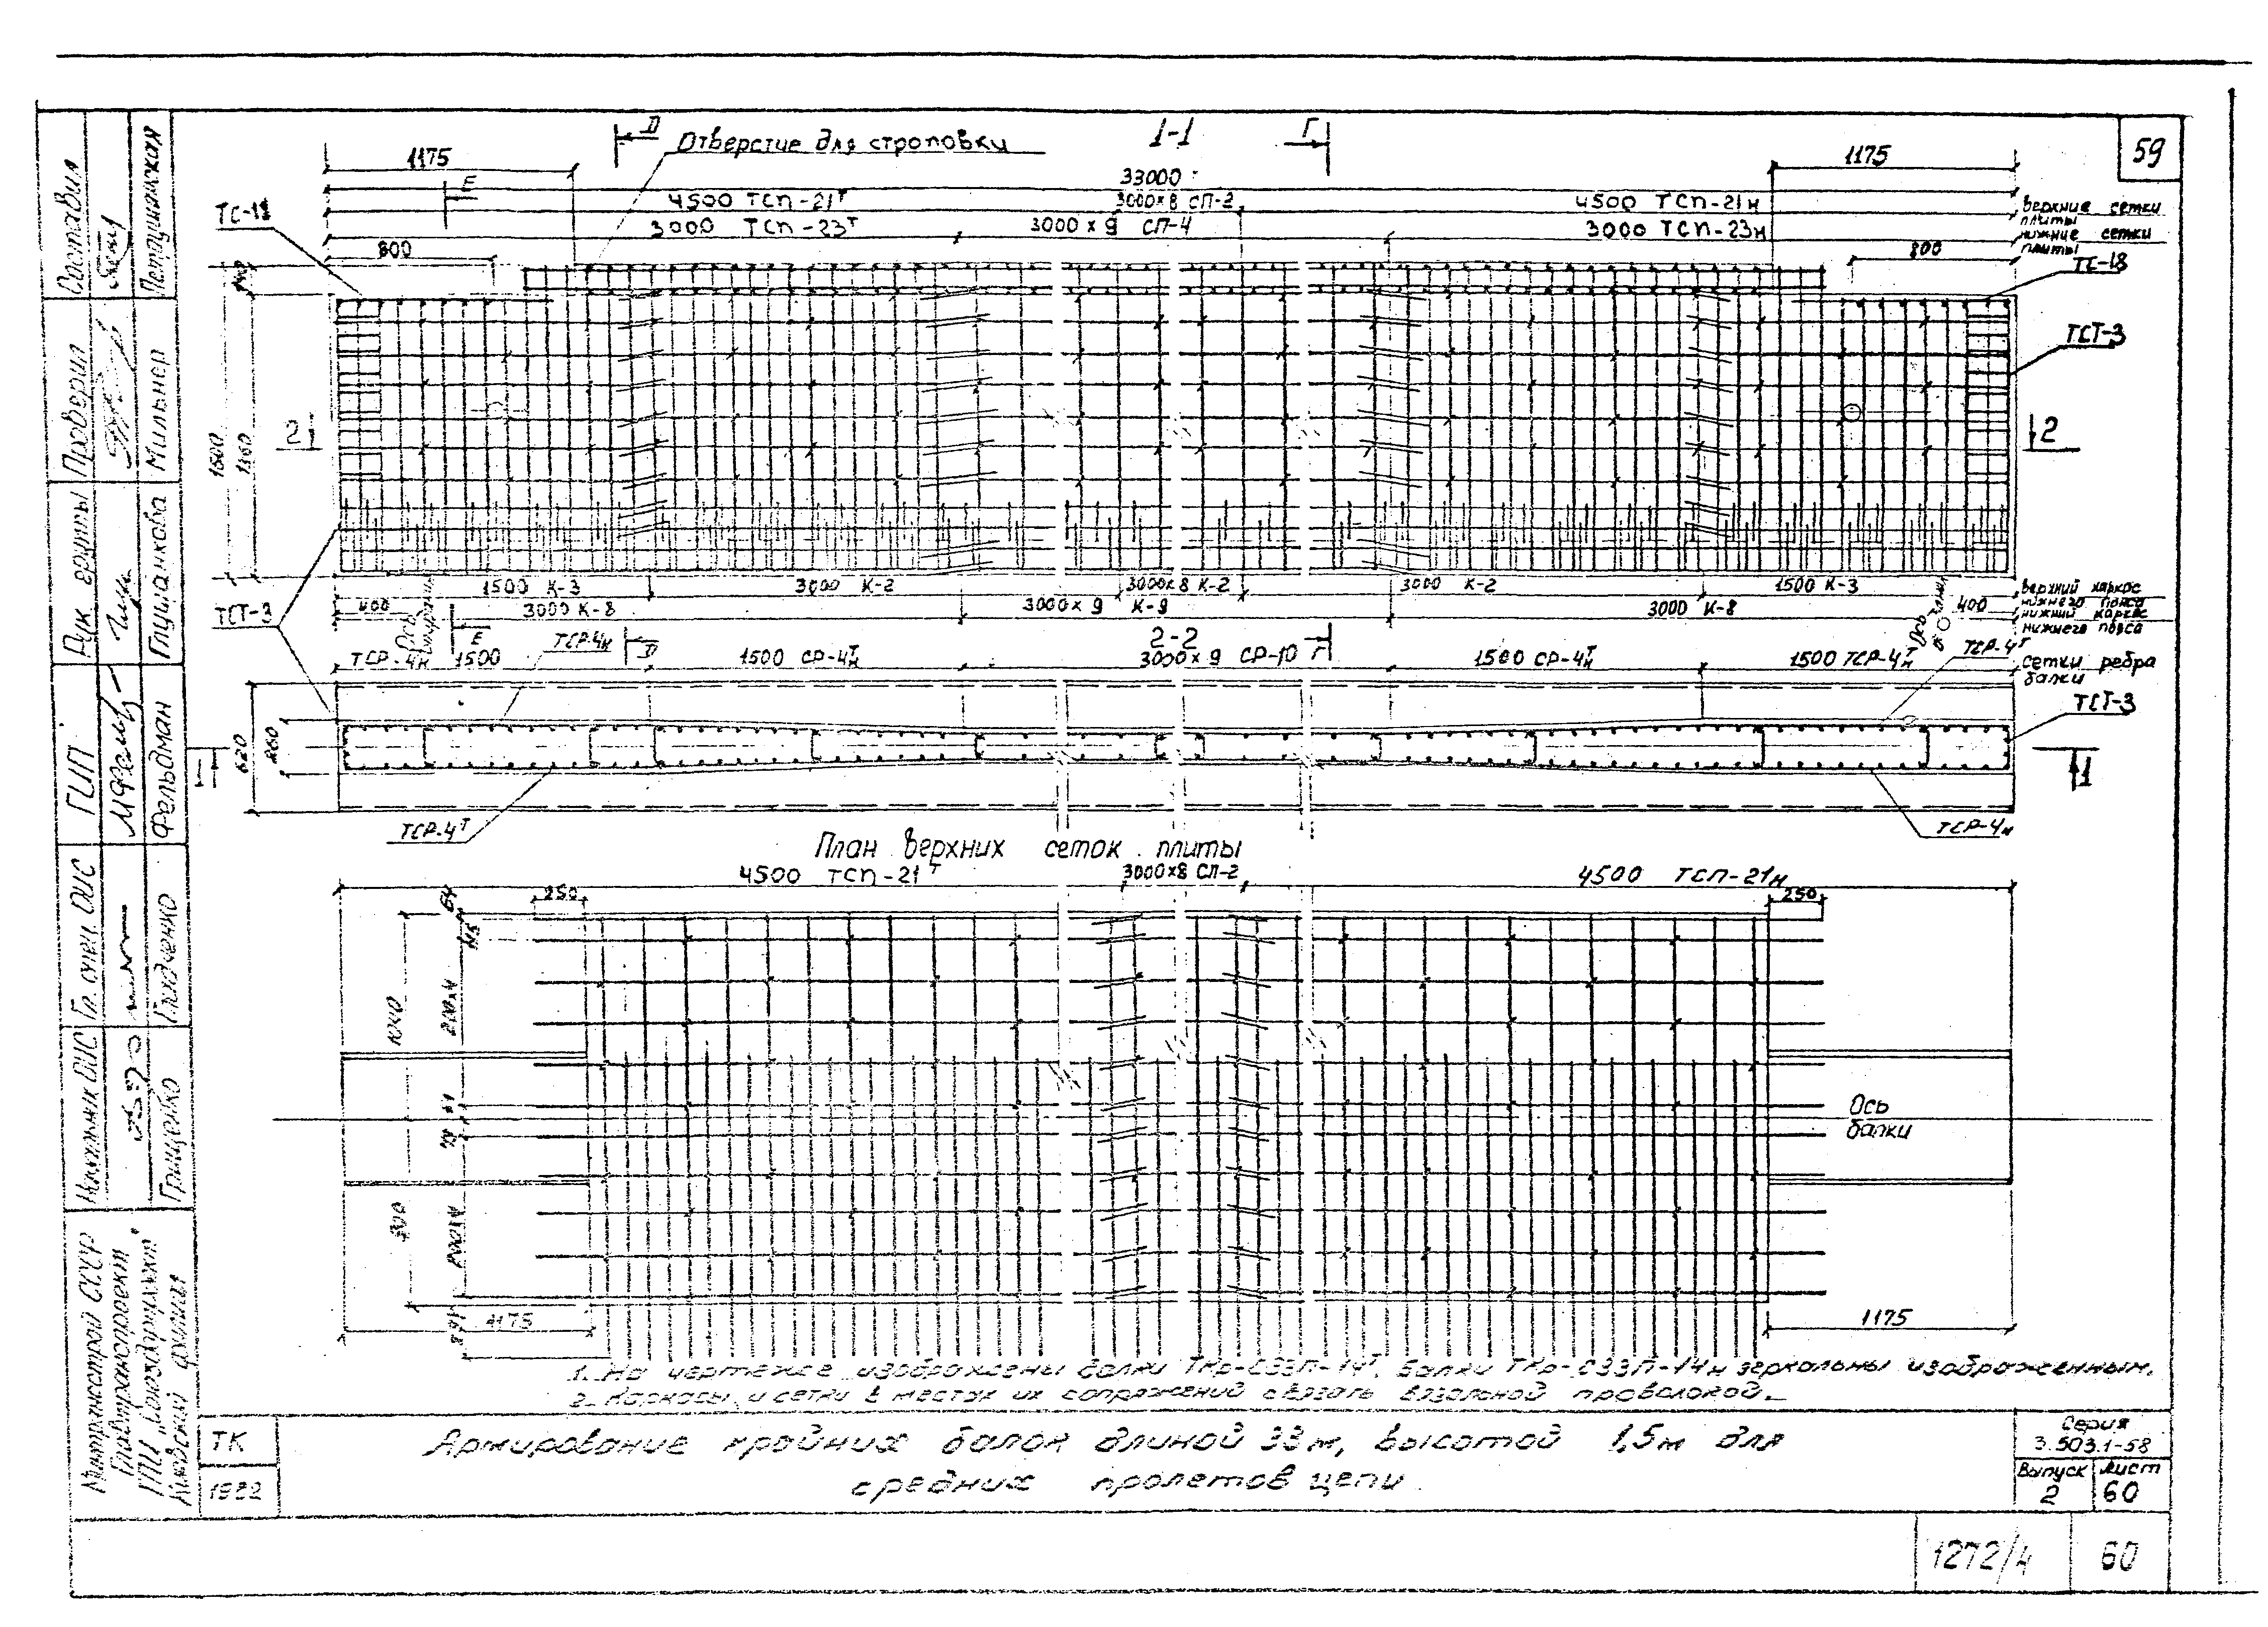 59
1-1
Д
Отверстие для строповки
Г
1175
1175
33000
Е
4500 ТСП-21т
3000×8 СП-2
4500 ТСП-21н
верхние сетки
плиты
3000 ТСП-23т
3000 × 9 СП-4
3000 ТСП-23н
нижние сетки
плиты
800
800
ТС-18
ТСТ-3
2
2
1500
ТСТ-3
1500 К-3
3000 К-2
3000×8 К-2
3000 К-2
1500 К-3
верхний каркас
нижнего пояса
400
3000 К-8
3000 × 9 К-9
3000 К-8
400
нижний каркас
нижнего пояса
Ось
Е
ТСР-4н
Д
2-2
Г
ТСР-4н 1500
1500 СР-4т н
3000 × 9 СР-10
1500 СР-4т н
1500 ТСР-4т н
ТСР-4т
сетки ребра
балки
ТСТ-3
620
260
1
1
ТСР-4т
ТСР-4н
План верхних сеток плиты
4500 ТСП-21т
3000×8 СП-2
4500 ТСП-21н
250
250
64
200×4
Ось
балки
200×4
1175
1175
1. На чертеже изображены балки ТКр-С33П-14т, балки ТКр-С33П-14н зеркальны изображенным.
2. Каркасы и сетки в местах их сопряжений связать вязальной проволокой.
ТК
1982
Армирование крайних балок длиной 33м, высотой 1,5м для
средних пролетов цепи
Серия
3.503.1-58
Выпуск
2
Лист
60
1272/4
60
Составил
Петрушанская
Проверил
Мильнер
Рук. группы
Глушакова
ГИП
Фельдман
Гл. спец. ОИС
Гладченко
Грищенко
Минтрансстрой СССР
Главтранспроект
ГПИ „Союздорпроект"
Киевский филиал